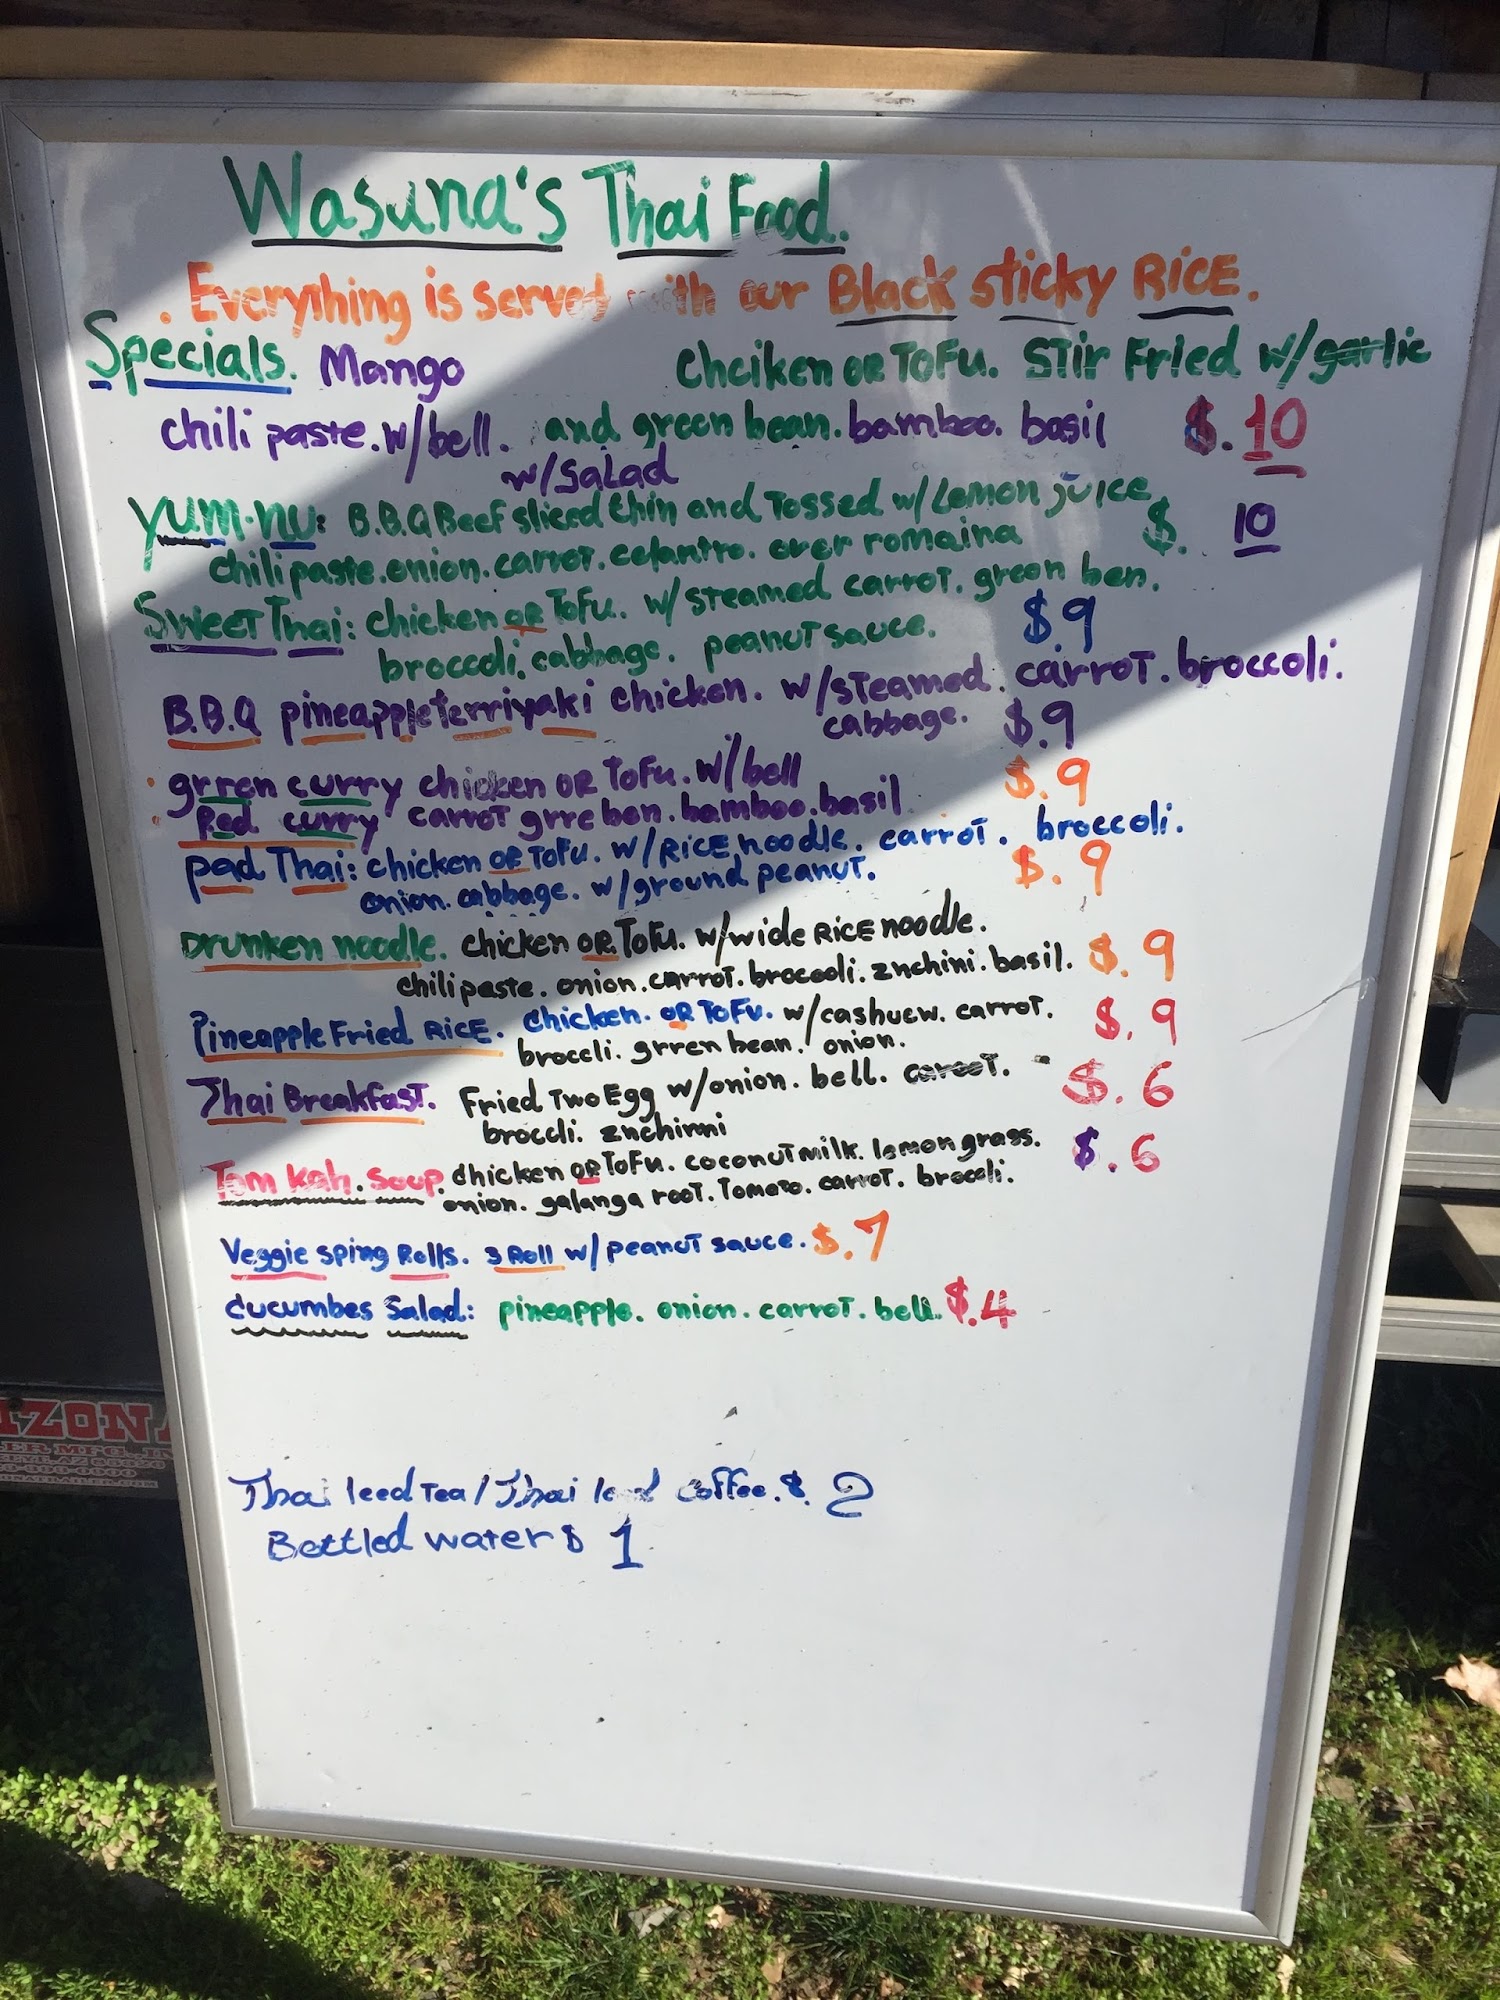 Wasuna's Thai Food.
. Everything is served with our Black sticky RICE.
Specials. Mango chciken OR ToFu. STir Fried w/garlic
chili paste.w/bell. and green bean. bamboo. basil $.10
w/salad
yum.nu: B.B.Q Beef sliced thin and Tossed w/Lemon juice
chili paste.onion.carrot.celantro. over romaina $. 10
SweeT Thai: chicken OR ToFu. w/STeamed carroT. green ben.
broccoli. cabbage. peanuT sauce. $.9
B.B.Q pineapple terriyaki chicken. w/sTeamed. carroT. broccoli.
cabbage. $.9
grren curry chicken OR ToFu. w/bell $.9
Red curry carroT grre ben. bamboo. basil
pad Thai: chicken OR ToFu. w/RICE noodle. carroT. broccoli.
onion. cabbage. w/ground peanuT. $.9
Drunken noodle. chicken OR ToFu. w/wide RICE noodle.
chili paste. onion.carroT.broccoli.znchini.basil. $.9
Pineapple Fried RICE. chicken. OR ToFu. w/cashuew. carroT. $.9
broccli. grren bean. onion.
Thai BreakfasT. Fried Two Egg w/onion. bell. caroot. $.6
broccli. znchinni
Tom Kah. Soup. chicken OR ToFu. coconuT milk. lemon grass. $.6
onion. galanga rooT. TomaTo. carroT. broccoli.
Veggie sping Rolls. 3 Roll w/ peanuT sauce. $.7
cucumbes Salad: pineapple. onion. carroT. bell. $.4
IZON
ER MFG., IN
Thai Iced Tea / Thai Iced coffee. $. 2
Bottled water $ 1